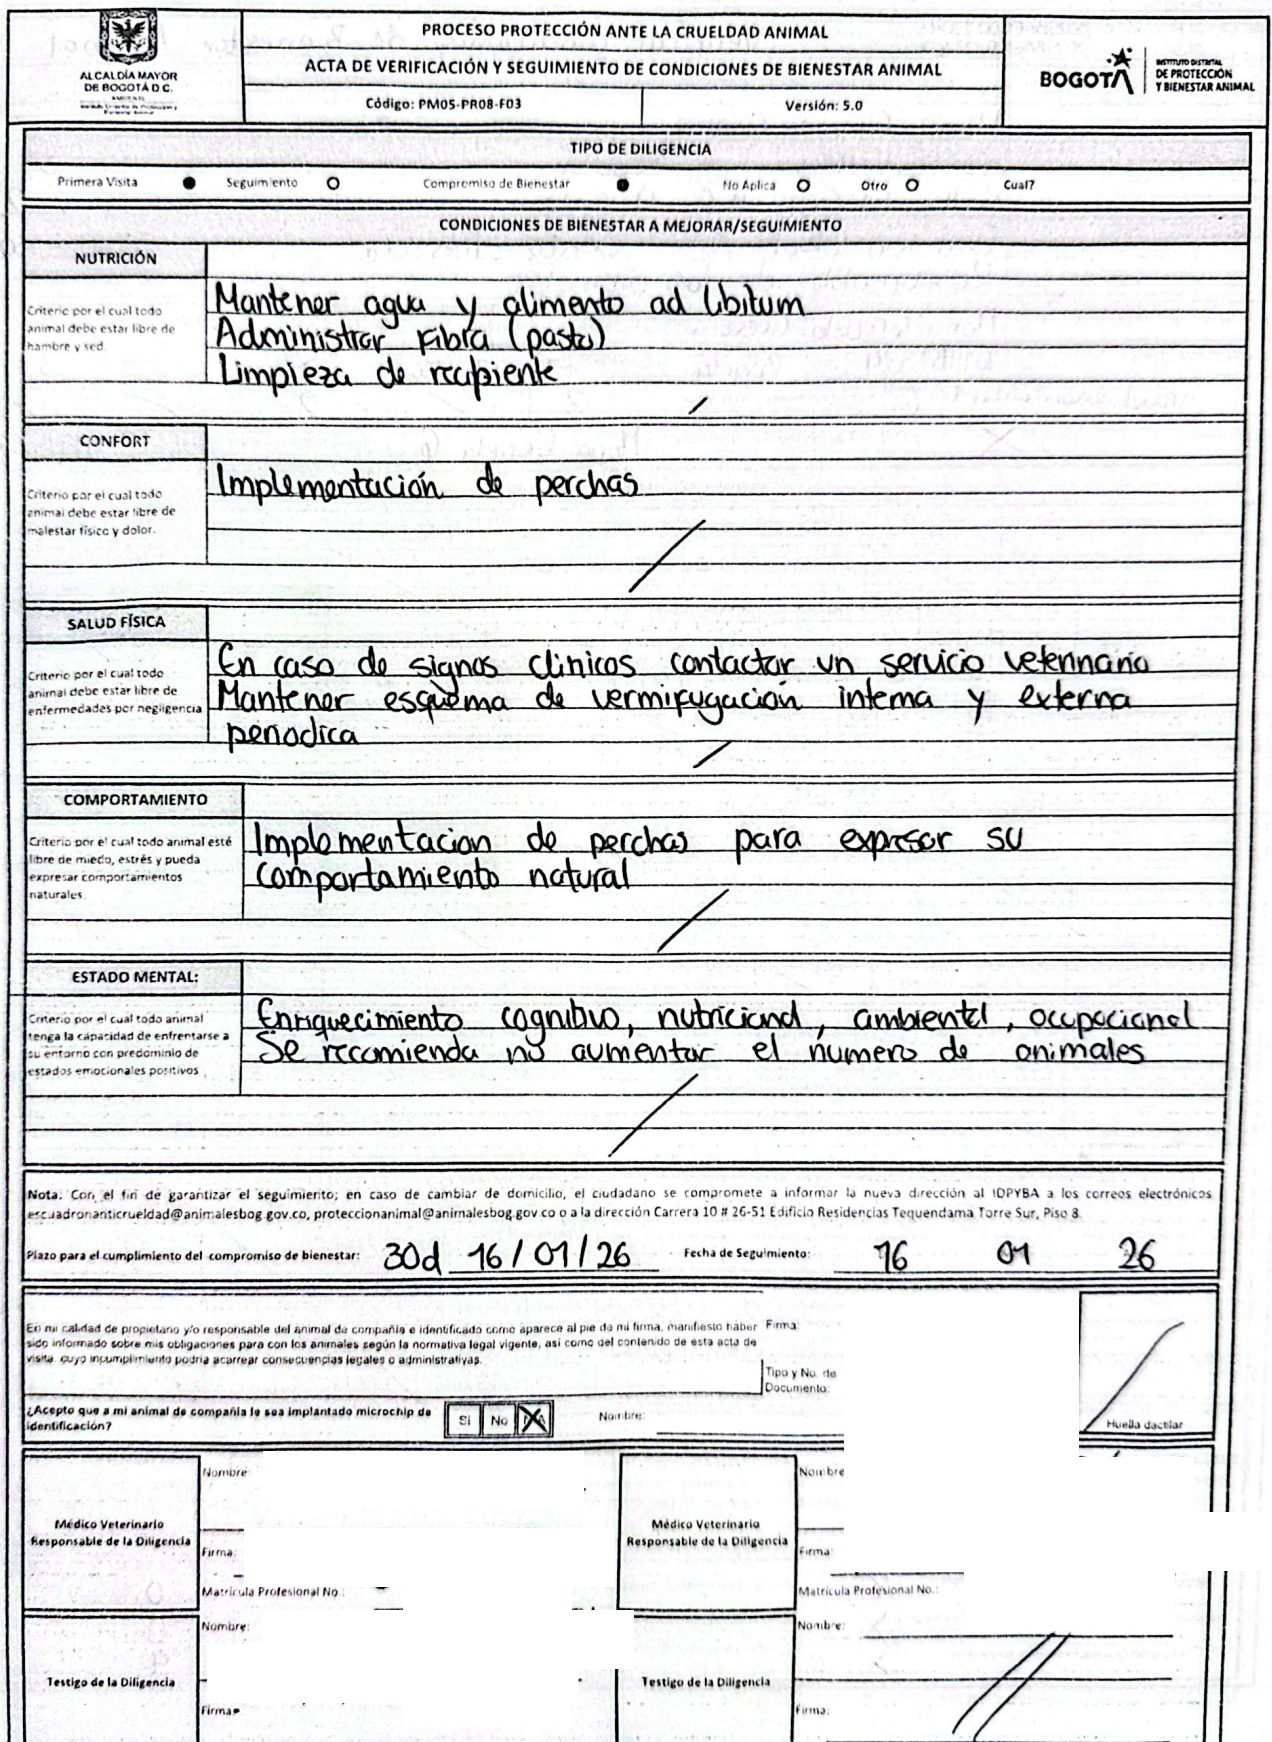 ALCALDÍA MAYOR
DE BOGOTÁ D.C.
AMBIENTE
PROCESO PROTECCIÓN ANTE LA CRUELDAD ANIMAL
ACTA DE VERIFICACIÓN Y SEGUIMIENTO DE CONDICIONES DE BIENESTAR ANIMAL
Código: PM05-PR08-F03 Versión: 5.0
BOGOTÁ
INSTITUTO DISTRITAL
DE PROTECCIÓN
Y BIENESTAR ANIMAL
TIPO DE DILIGENCIA
Primera Visita Seguimiento Compromiso de Bienestar No Aplica Otro Cual?
CONDICIONES DE BIENESTAR A MEJORAR/SEGUIMIENTO
NUTRICIÓN
Criterio por el cual todo
animal debe estar libre de
hambre y sed.
Mantener agua y alimento ad libitum
Administrar fibra (pasto)
Limpieza de recipiente
CONFORT
Criterio por el cual todo
animal debe estar libre de
malestar físico y dolor.
Implementación de perchas
SALUD FÍSICA
Criterio por el cual todo
animal debe estar libre de
enfermedades por negligencia
En caso de signos clinicos contactar un servicio veterinario
Mantener esquema de vermifugación interna y externa
periodica
COMPORTAMIENTO
Criterio por el cual todo animal esté
libre de miedo, estrés y pueda
expresar comportamientos
naturales.
Implementacion de perchas para expresar su
comportamiento natural
ESTADO MENTAL:
Criterio por el cual todo animal
tenga la capacidad de enfrentarse a
su entorno con predominio de
estados emocionales positivos
Enriquecimiento cognitivo, nutricional, ambiental, ocupacional
Se recomienda no aumentar el numero de animales
Nota: Con el fin de garantizar el seguimiento; en caso de cambiar de domicilio, el ciudadano se compromete a informar la nueva dirección al IDPYBA a los correos electrónicos
escuadronanticrueldad@animalesbog.gov.co, proteccionanimal@animalesbog.gov.co o a la dirección Carrera 10 # 26-51 Edificio Residencias Tequendama Torre Sur, Piso 8.
Plazo para el cumplimiento del compromiso de bienestar: 30d 16/01/26 Fecha de Seguimiento: 16 01 26
En mi calidad de propietario y/o responsable del animal de compañía e identificado como aparece al pie de mi firma, manifiesto haber
sido informado sobre mis obligaciones para con los animales según la normativa legal vigente, así como del contenido de esta acta de
visita, cuyo incumplimiento podría acarrear consecuencias legales o administrativas.
Firma:
Tipo y No. de
Documento:
¿Acepto que a mi animal de compañía le sea implantado microchip de
identificación?
Si No
Nombre:
Huella dactilar
Médico Veterinario
Responsable de la Diligencia
Nombre:
Firma:
Matrícula Profesional No.:
Médico Veterinario
Responsable de la Diligencia
Nombre
Firma:
Matrícula Profesional No.:
Testigo de la Diligencia
Nombre:
Firma:
Testigo de la Diligencia
Nombre:
Firma: